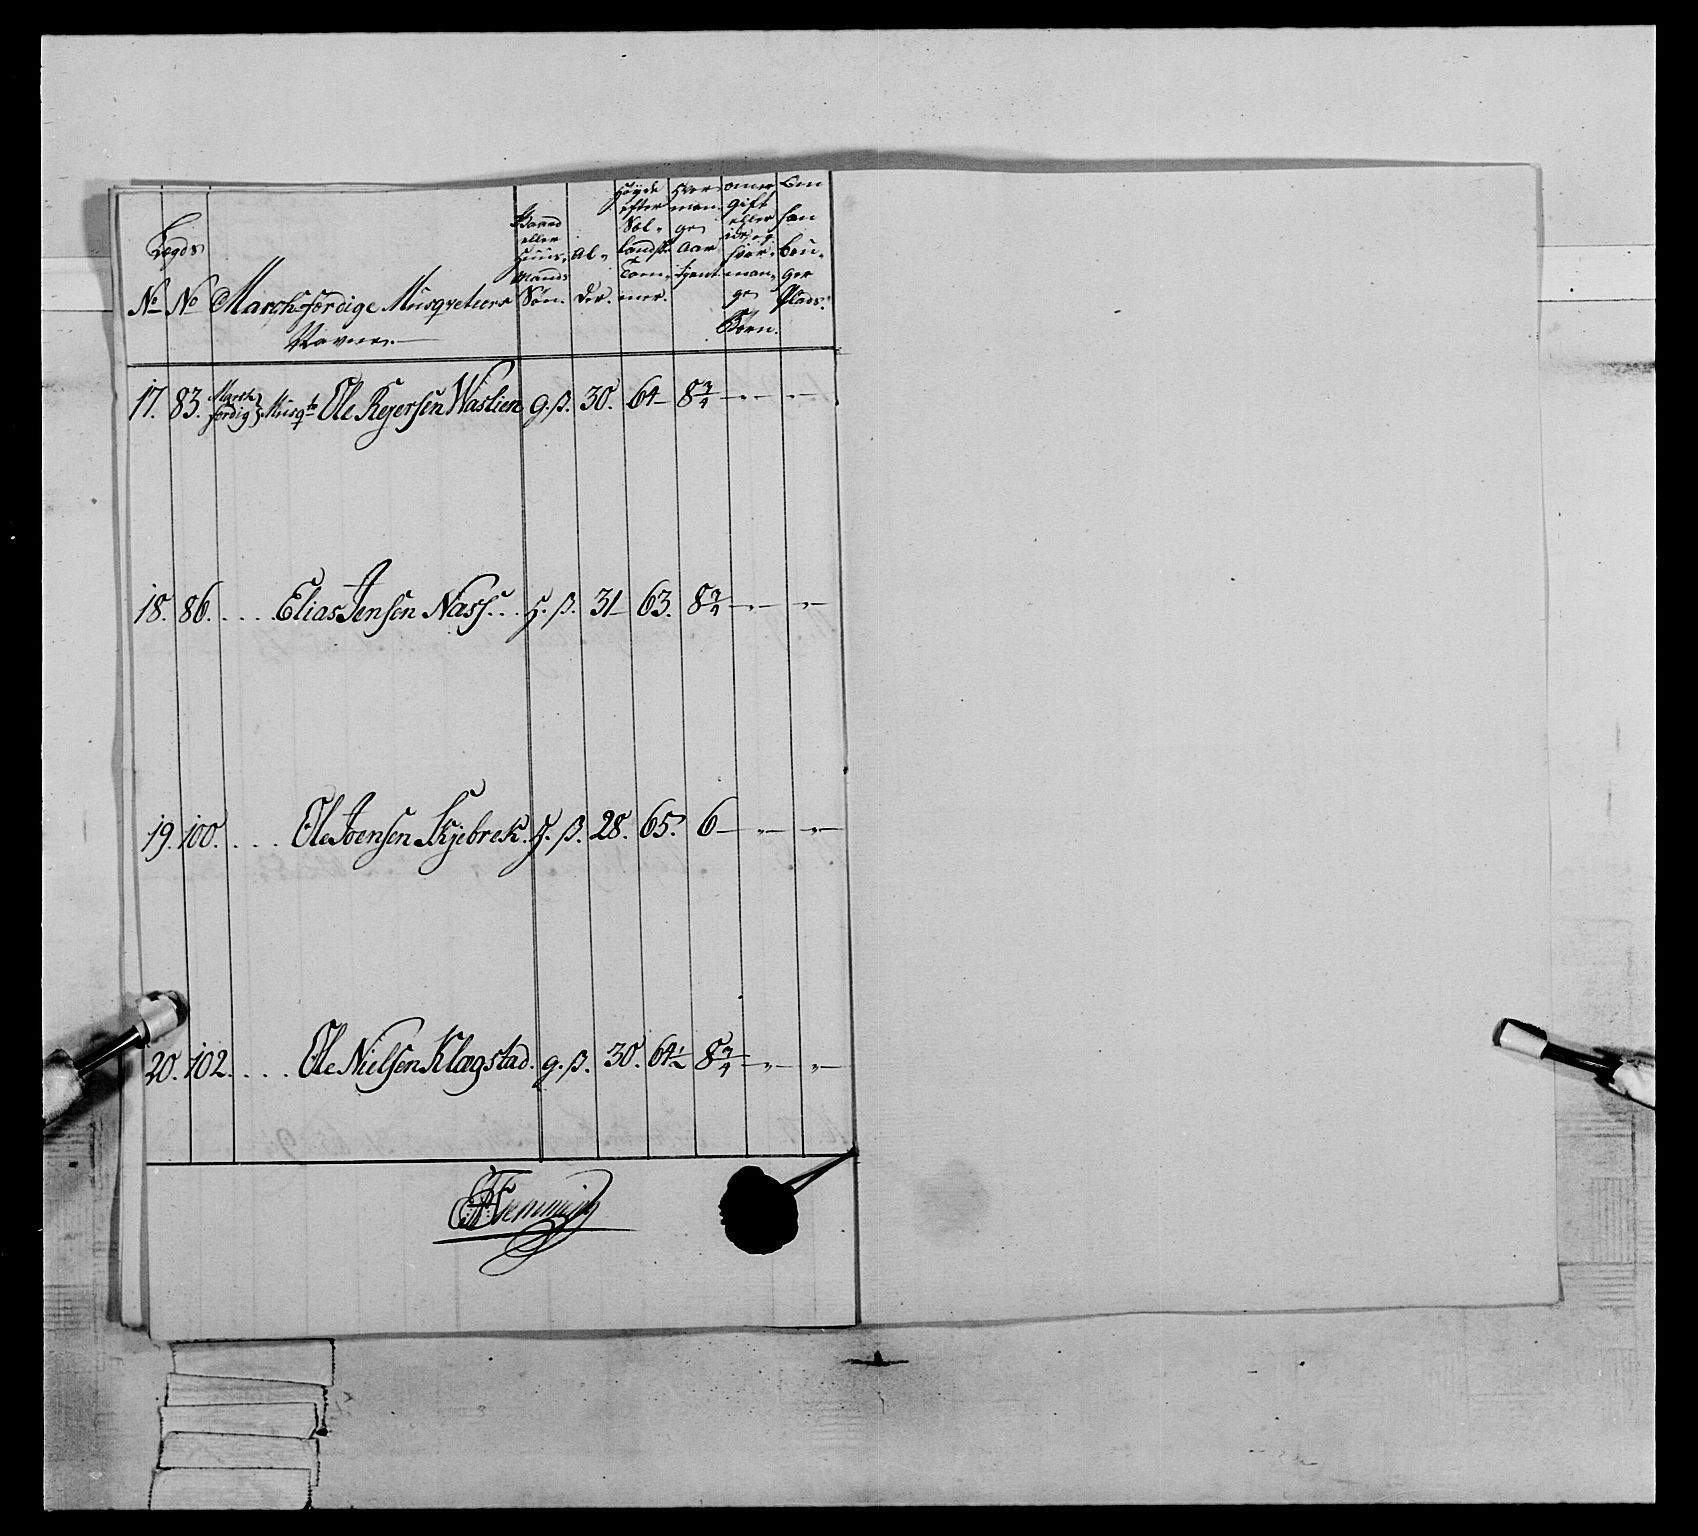 Lægds
No No Marchfærdige Musqveteers Navne.
Gaard eller Huus- Mands Søn.
Al- der.
Høyde efter Sol- landske Tom- mer.
Hvor man- ge Aar tient
Om er Gift eller ey, og hvor man- ge Børn.
Om han Bou- ger Plads.
17. 83. March færdig Musqtr Ole Reyersen Waslien g. s. 30. 64 — 8 3/4 — „ — „ —
18. 86. . . . . Elias Jensen Næss . . . h. s. 31 — 63. 8 3/4 — „ — „ —
19. 100. . . . . Ole Joensen Skjebrek. h. s. 28. 65. 6 — „ — „ —
20. 102. . . . . Ole Nielsen Klægstad. g. s. 30. 64 1/2 8 3/4 — „ — „ —